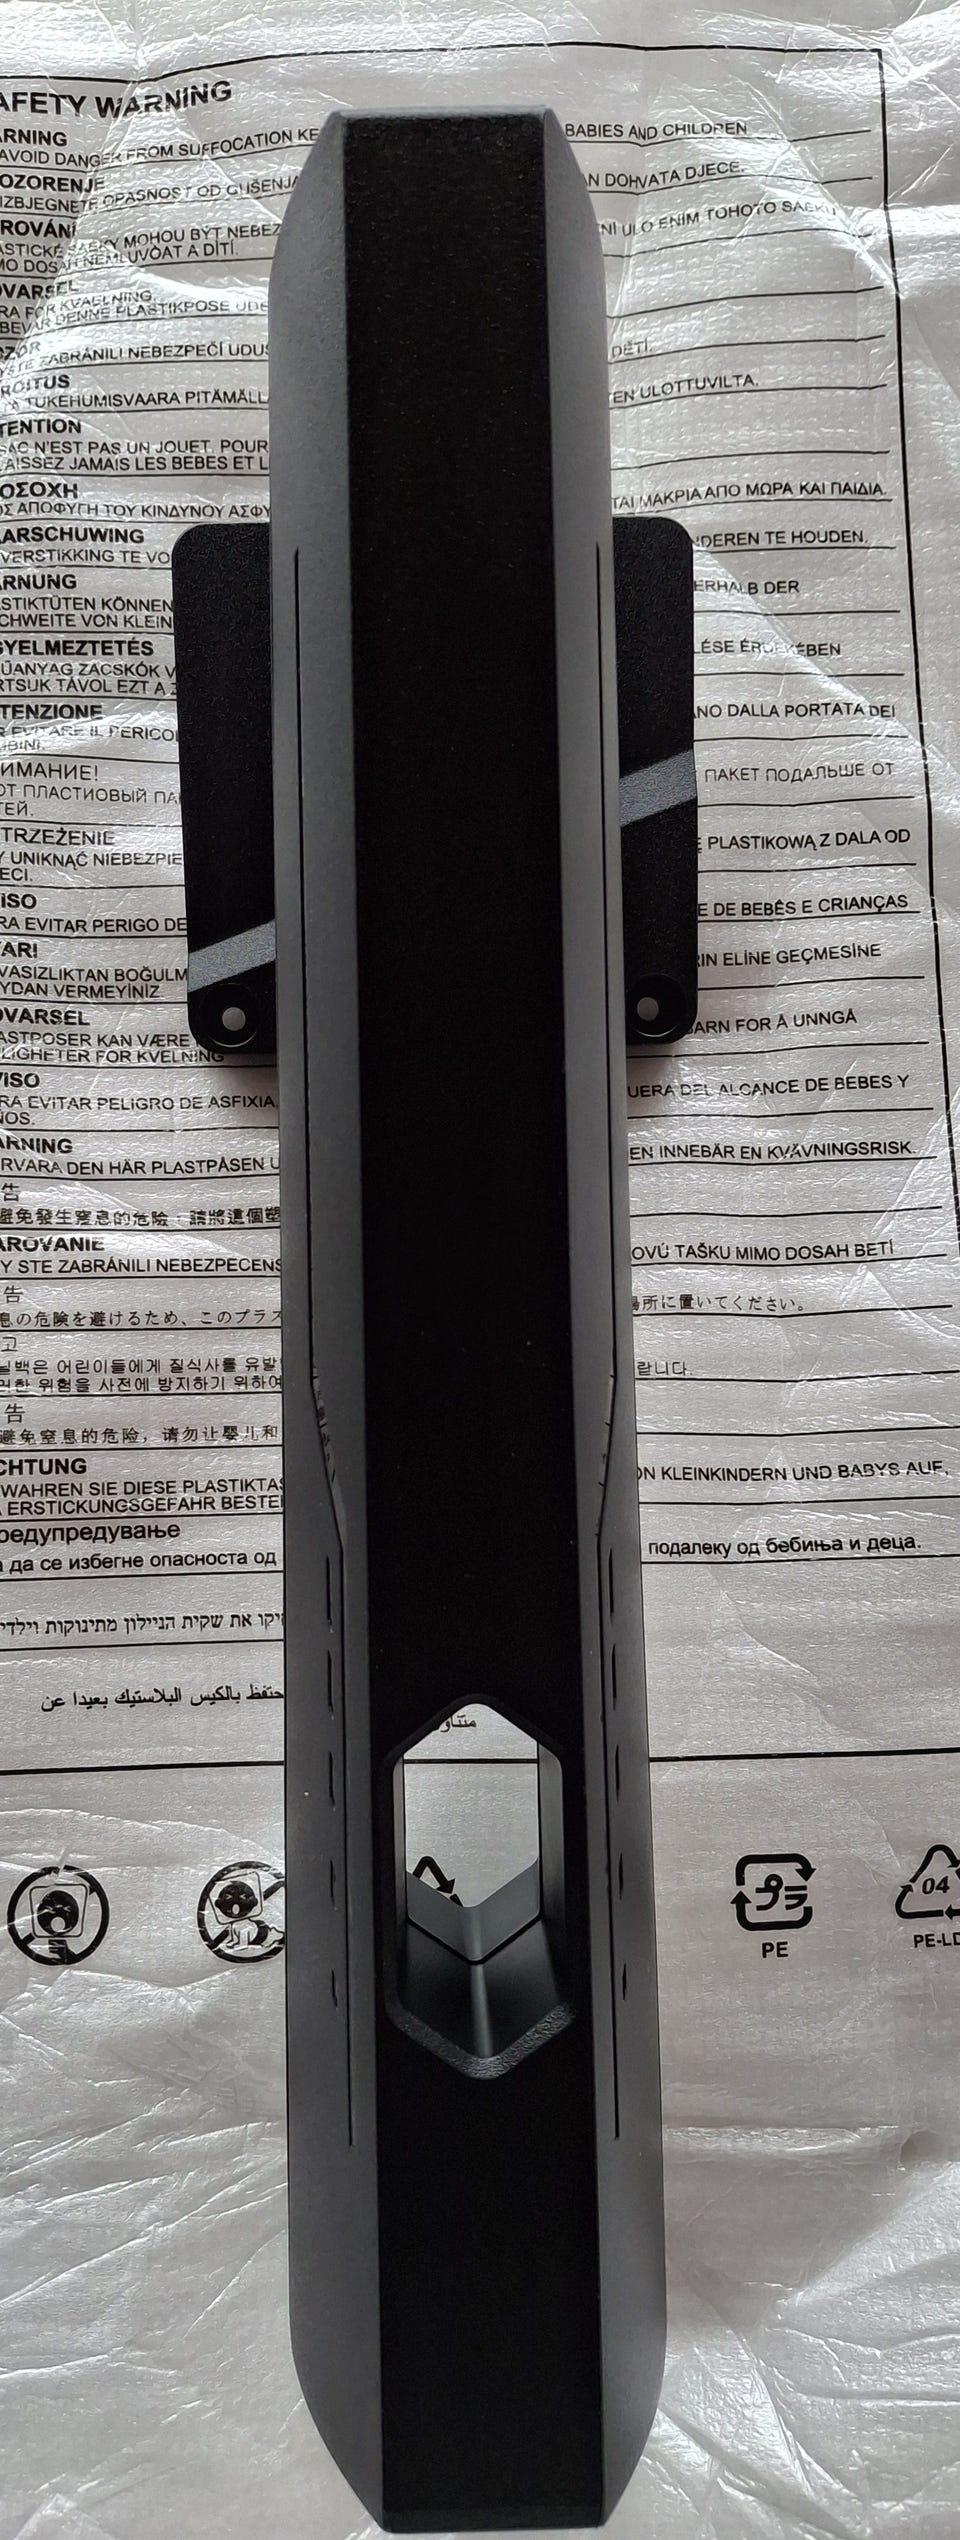 AFETY WARNING
ARNING
AVOID DANGER FROM SUFFOCATION KE BABIES AND CHILDREN
OZORENJE
IZBJEGNETE OPASNOST OD GUŠENJA AN DOHVATA DJECE.
ROVÁNÍ
ASTICKÉ SÁČKY MOHOU BÝT NEBEZ NÍ ULO ENIM TOHOTO SÁČKU
MO DOSAH NEMLUVÒAT A DÍTÍ.
DVARSEL
RA FOR KVAELNING.
BEVAR DENNE PLASTIKPOSE UDE
OZOR
YSTE ZABRÁNILI NEBEZPEČÍ UDUS DĚTÍ.
ROITUS
TUKEHUMISVAARA PITÄMÄLL EN ULOTTUVILTA.
TENTION
SAC N'EST PAS UN JOUET. POUR
AISSEZ JAMAIS LES BEBES ET L
ΟΣΟΧΗ
ΟΣ ΑΠΟΦΥΓΗ ΤΟΥ ΚΙΝΔΥΝΟΥ ΑΣΦΥ ΤΑΙ ΜΑΚΡΙΑ ΑΠΟ ΜΩΡΑ ΚΑΙ ΠΑΙΔΙΑ.
AARSCHUWING
VERSTIKKING TE VO NDEREN TE HOUDEN.
ARNUNG
STIKTÜTEN KÖNNEN ERHALB DER
CHWEITE VON KLEIN
GYELMEZTETÉS
ŰANYAG ZACSKÓK V LÉSE ÉRDEKÉBEN
RTSUK TÁVOL EZT A Z
TENZIONE
R EVITARE IL PERICOL ANO DALLA PORTATA DEI
MBINI.
ИМАНИЕ!
ОТ ПЛАСТИОВЫЙ ПА ПАКЕТ ПОДАЛЬШЕ ОТ
ТЕЙ.
TRZEŻENIE
Y UNIKNĄĆ NIEBEZPIE Ę PLASTIKOWĄ Z DALA OD
ECI.
ISO
RA EVITAR PERIGO DE E DE BEBÊS E CRIANÇAS
ARI
VASIZLIKTAN BOĞULM RIN ELİNE GEÇMESİNE
YDAN VERMEYİNİZ
DVARSEL
ASTPOSER KAN VÆRE BARN FOR Å UNNGÅ
LIGHETER FOR KVELNING
VISO
RA EVITAR PELIGRO DE ASFIXIA, UERA DEL ALCANCE DE BEBES Y
ÑOS.
ARNING
RVARA DEN HÄR PLASTPÅSEN U EN INNEBÄR EN KVÄVNINGSRISK.
告
避免發生窒息的危險，請將這個塑
AROVANIE
Y STE ZABRÁNILI NEBEZPECENS OVÚ TAŠKU MIMO DOSAH BETÍ
告
息の危険を避けるため、このプラス 場所に置いてください。
고
닐백은 어린이들에게 질식사를 유발 랍니다.
러한 위험을 사전에 방지하기 위하여
告
避免窒息的危险，请勿让婴儿和
CHTUNG
WAHREN SIE DIESE PLASTIKTAS ON KLEINKINDERN UND BABYS AUF,
A ERSTICKUNGSGEFAHR BESTE
редупредување
а да се избегне опасноста од подалеку од бебиња и деца.
יקו את שקית הניילון מתינוקות וילדי
حتفظ بالكيس البلاستيك بعيدا عن
متناو
プラ
PE
04
PE-LD